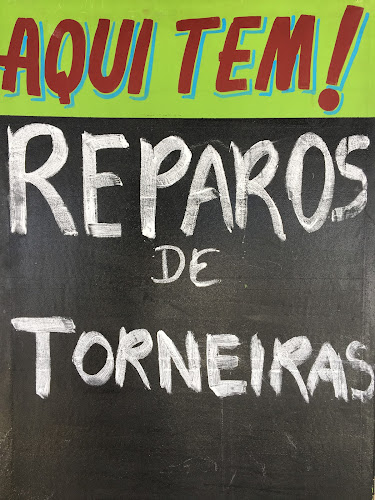 AQUI TEM!
REPAROS
DE
TORNEIRAS